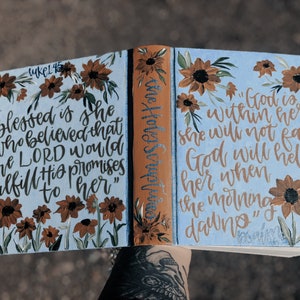 LUKE 1:45
"blessed is she
who believed that
the LORD would
fulfill His promises
to her"
the Holy Scriptures
"God is
within her,
she will not fall
God will help
her when
the morning
dawns"